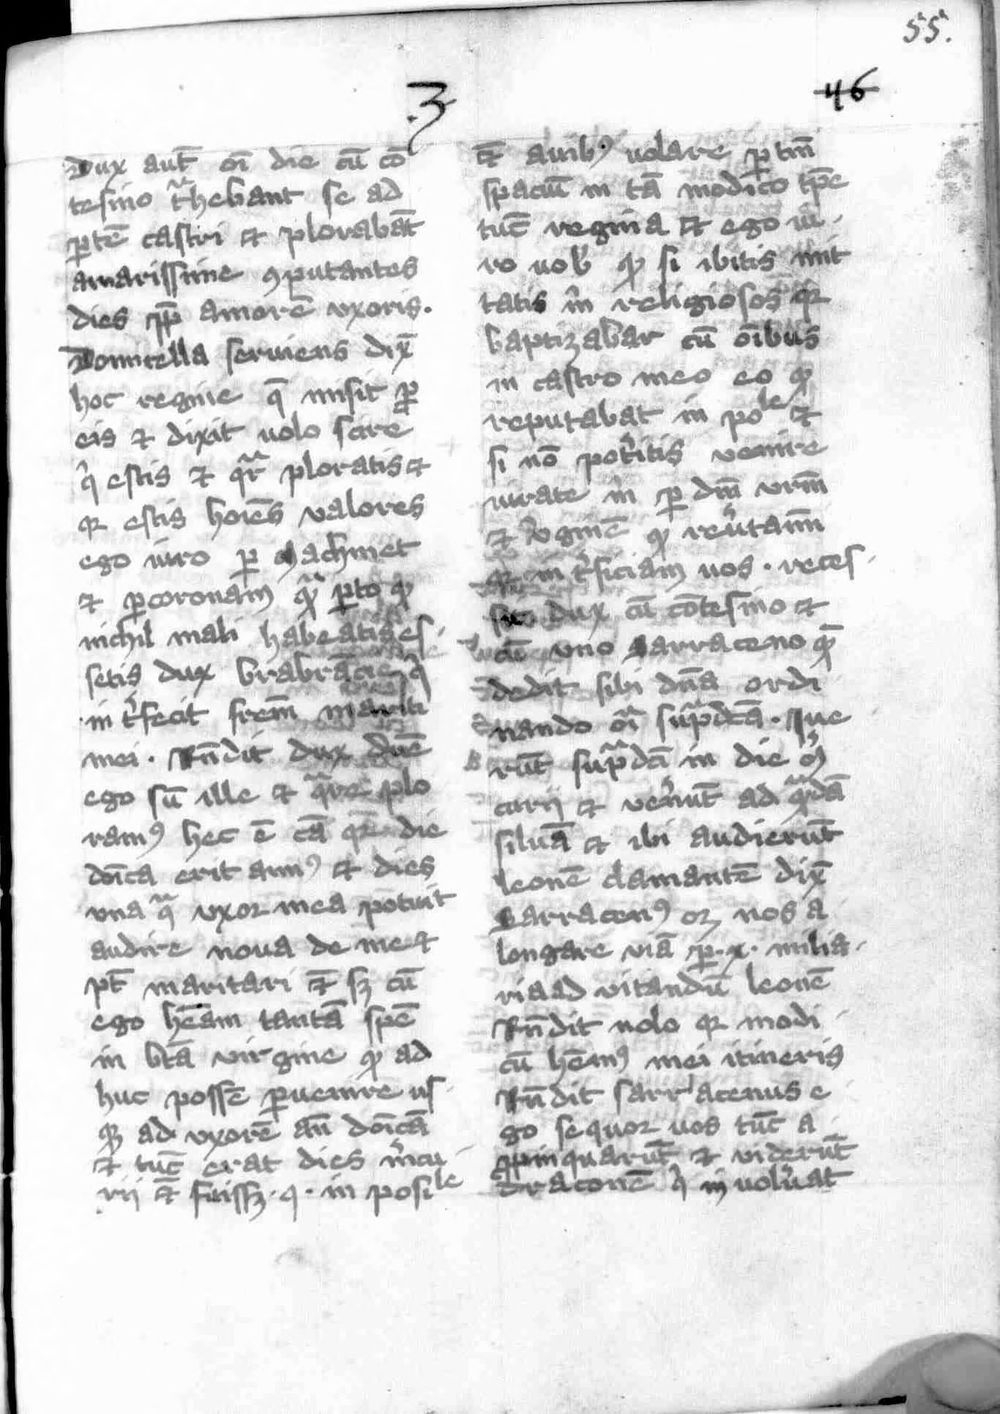 55.
3
46
Dux aut̄ oī die cū cō
tesino t̄hebant se ad
ꝑtē castri et plorabāt
amarissime ꝯputantes
dies ꝓp̄ amorē uxoris.
Donicella serviens dix̄
hoc regine q̄ misit ꝓ
eis et dixit volo scire
qͥ estis et qͣr ploratis et
qꝛ estis hoīes valores
ego iuro ꝑ Machmet
et ꝑ coronam quā ꝑto ꝙ
nichil mali habeatis es
setis dux brabrācie qͥ
int̄fecit frem̄ mariti
mei. Rn̄dit dux dn̄e
ego sū ille et qͣre plo
ramꝰ hec ē cā qꝛ die
doīca erit annꝰ et dies
una qͣ uxor mea potuit
audire nova de me et
pt̄ maritari et̄ sꝫ cū
ego hēam tantā spē
in btā virgine ꝙ ad
huc possē ꝑvenire us
qꝫ ad uxorē an̄ doīcā
et tūc erat dies m̄cu
rii et̄ fuissꝫ .q. in posile
et̄ avibꝰ volare ꝑ tm̄
spaciū in tā modico tp̄e
tūc regina et ego iu
ro vob̄ ꝙ si ibitis mit
tatis m̄ religiosos qꝛ
baptizabar cū oībus
in castro meo eo ꝙ
reputabat in pole et
si nō potitis venire
iurate m̄ ꝑ dm̄ vrm̄
et v̄ginē ꝙ rev̄tamī
qꝛ int̄ficiam vos. reces
sit dux cū cōtesino et
cū uno Sarraceno quē
dedit sibi dn̄a ordi
nando oīa supͣdcā. Ive
rūt supͣdcī in die m̄
curii et venūt ad qͣdā
silvā et ibi audierūt
leonē clamantē dix̄
Sarracenꝰ oꝫ nos a
longare viā ꝑ .x. milia
ria ad vitandū leonē
Rn̄dit nolo qꝛ modi
cū hēmꝰ mei itineris
Rn̄dit sarracenus e
go sequor vos tūc a
ꝓpinquarūt et viderūt
draconē qͥ involv̄at